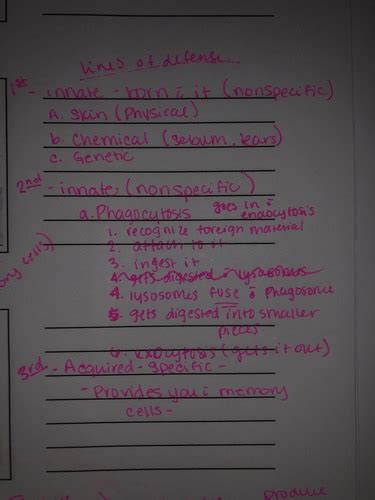 lines of defense
1st - innate - born c̄ it (nonspecific)
A. Skin (Physical)
b. Chemical (sebum, tears)
c. Genetic
2nd - innate, (nonspecific)
a. Phagocytosis goes in c̄
endocytosis
1. recognize foreign material
2. attach to it
3. ingest it
4. gets digested c̄ lysosomes
4. lysosomes fuse c̄ phagosome
5. gets digested into smaller
pieces
6. exocytosis (gets it out)
ory cells))
3rd - Acquired - specific -
- Provides you c̄ memory
cells -
produce